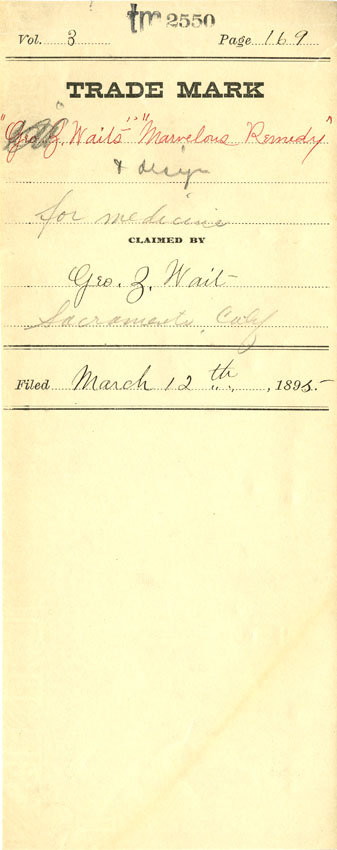 tm 2550
Vol. 3 Page 169
TRADE MARK
"Geo. Z. Wait's" "Marvelous Remedy"
& design
for medicine
CLAIMED BY
Geo. Z. Wait
Sacramento, Calif
Filed March 12th, 1895-